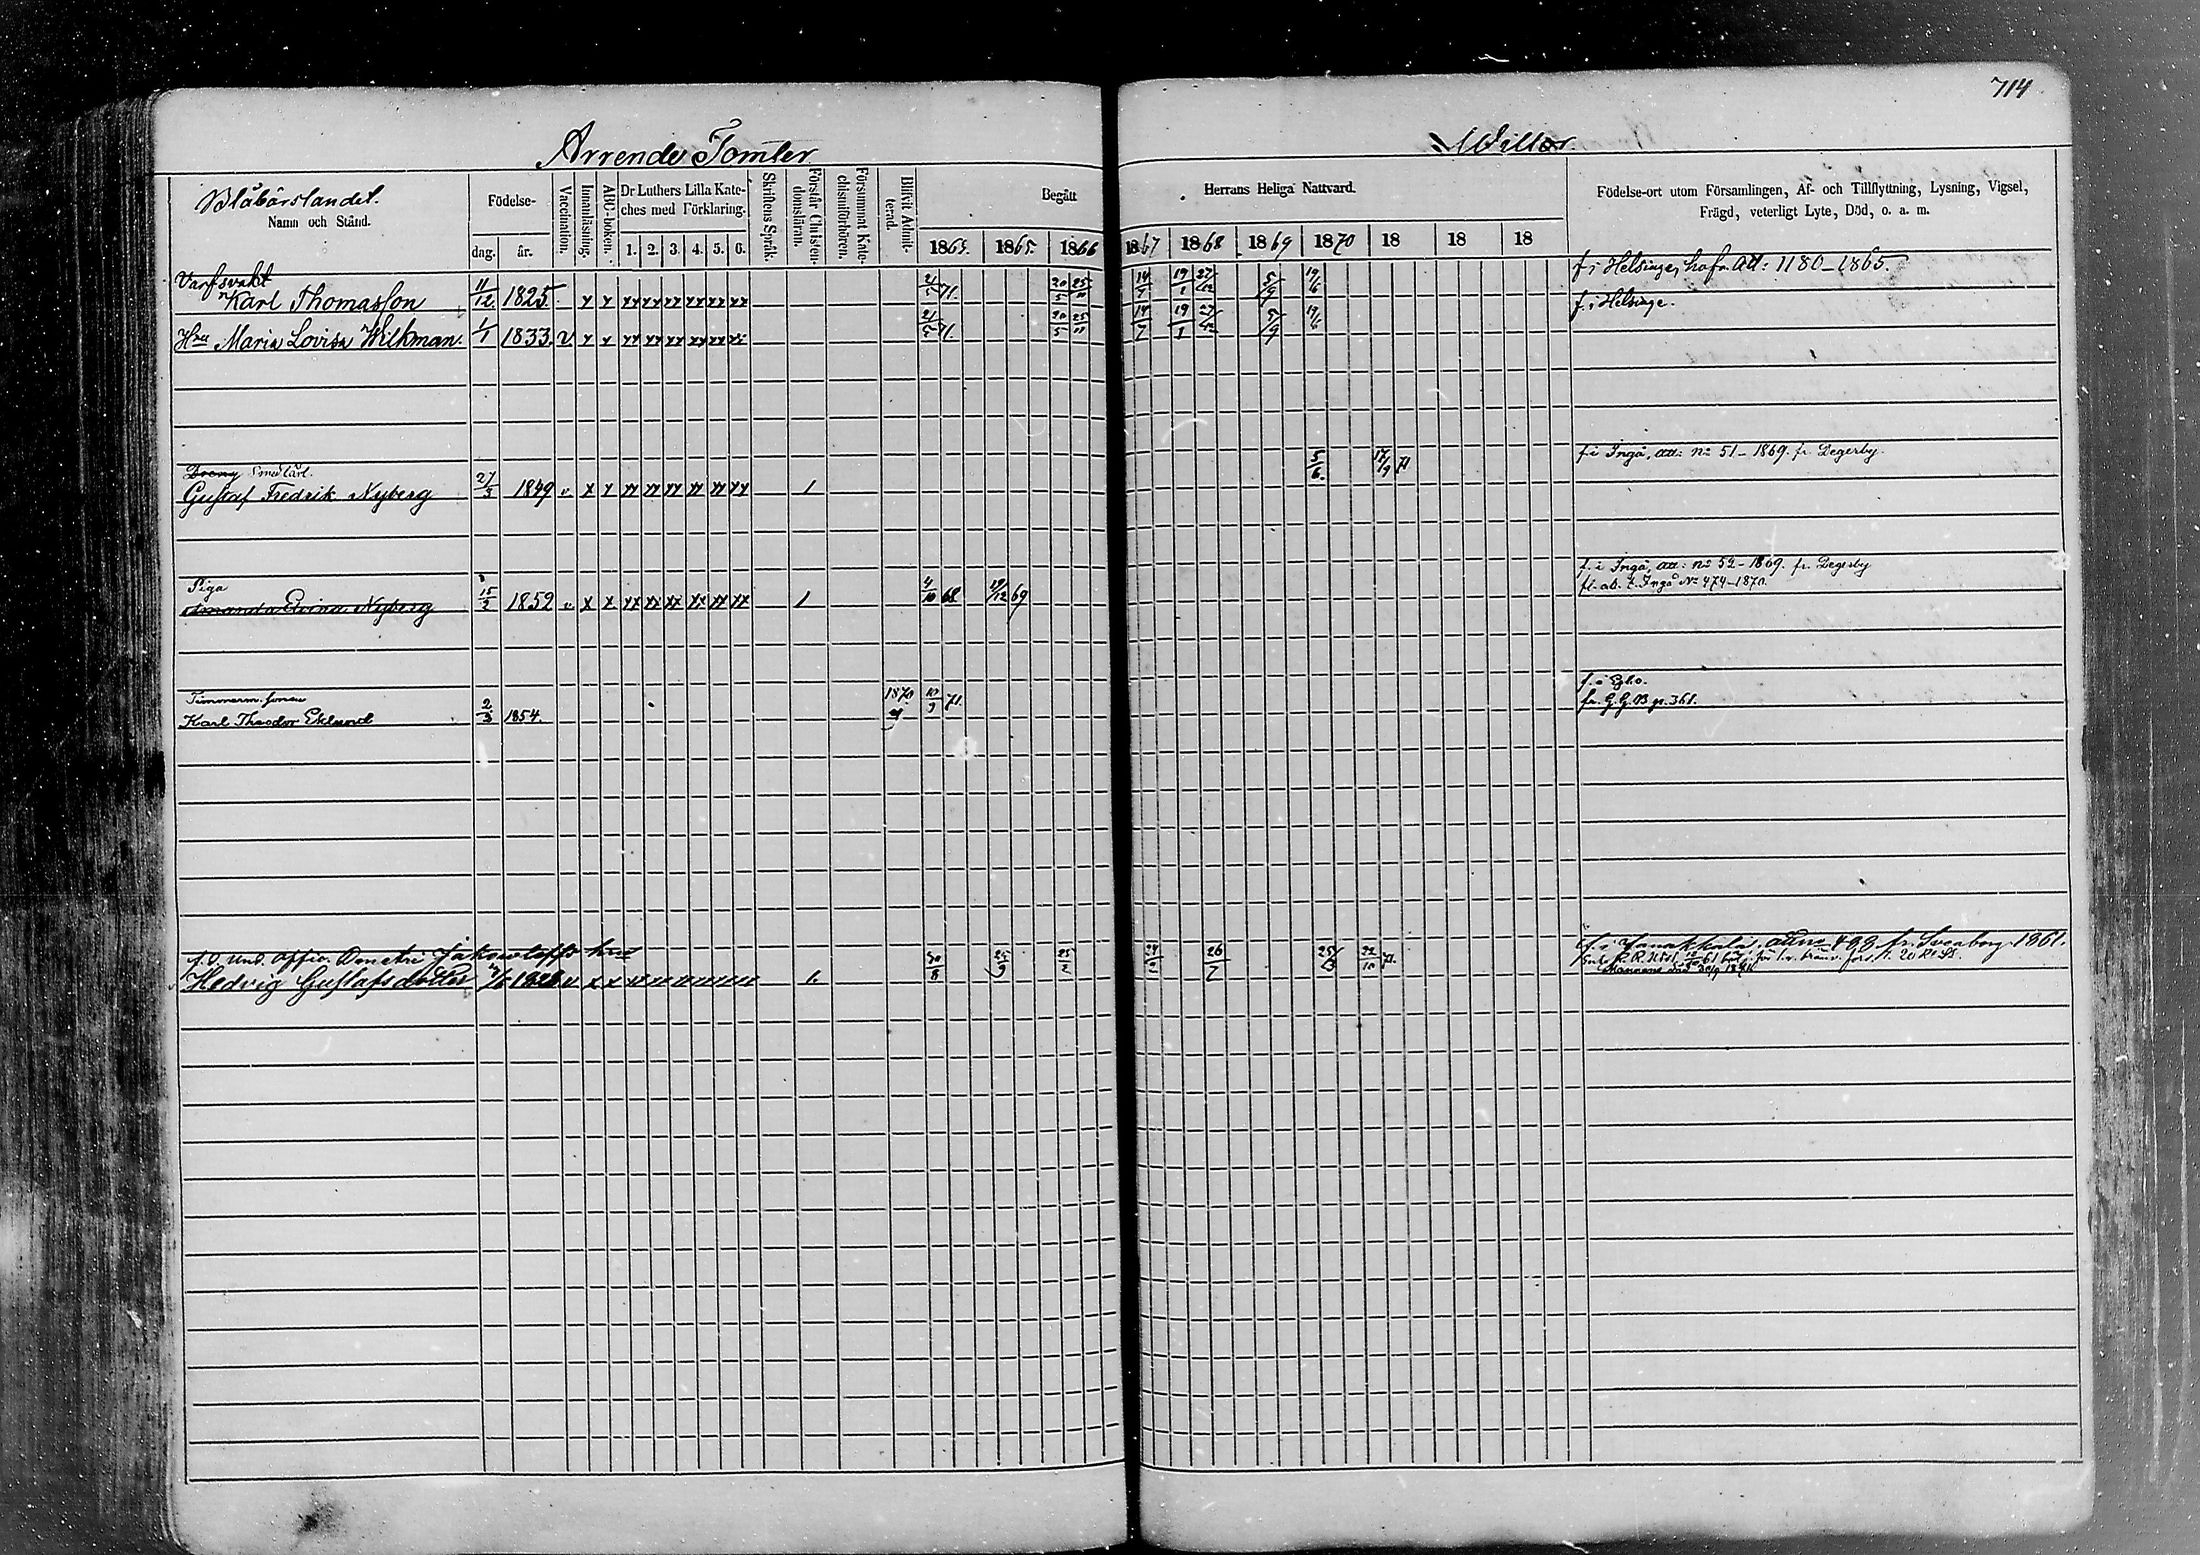 714
Arrende Tomter
Willor.
Blåbärslandet.
Namn och Stånd.
Födelse-
dag. år.
Vaccination.
Innanläsning.
ABC-boken.
Dr Luthers Lilla Kate-
ches med Förklaring.
1. 2. 3. 4. 5. 6.
Skriftens Språk.
Förstår Christen-
domsläran.
Försummat Kate-
chismiförhören.
Blifvit Admit-
terad.
Begått
Herrans Heliga Nattvard.
1865. 1865. 1866 1867 1868 1869 1870 18 18 18
Födelse-ort utom Församlingen, Af- och Tillflyttning, Lysning, Vigsel,
Frägd, veterligt Lyte, Död, o. a. m.
Varfsvakt f. i Helsinge, att: 1180-1865.
Karl Thomasson 11/12 1825 x x xx xx xx xx xx xx 21/5 71. 20/5 25/11 19/1 27/12 5/9 19/6 f. i Helsinge.
Hru Maria Lovisa Wilkman. 1/1 1833. v x x xx xx xx xx xx xx 21/5 71. 20/5 25/11 14/7 19/1 27/12 5/9 19/6
Smedlärl. f. i Ingå, att: No 51-1869. fr. Degerby.
Gustaf Fredrik Nyberg 27/3 1849 v x x xx xx xx xx xx xx 1 5/6. 17/9 71
Piga f. i Ingå, att: No 52-1869. fr. Degerby
Amanda Evina Nyberg 15/2 1852 v x x xx xx xx xx xx xx 1 4/10 68 19/12 69 fl. ab. t. Ingå No 474-1870.
Timmerm. sonen 1870. f. i Esbo.
Karl Theodor Eklund 2/3 1854. 10/9 71. fr. G. G. B. p. 361.
f. d. Und. Offic. Dmetri Jakowleffs hru f. i Janakkala, 488 fr. Sveaborg 1861.
Hedvig Gustafsdotter 1828 v x x 1. 30/8 24/9 25/2 24/2 26/7 22/10 71. 20 R. S.
Mannens